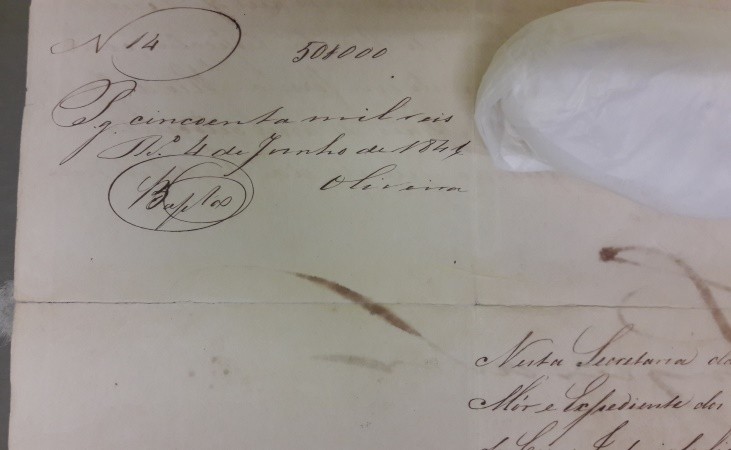 N 14
50$000
Pg. cincoenta mil reis
Rio 4 de Junho de 184
Oliveira
Nesta Secretaria da
Mór e Expediente dos